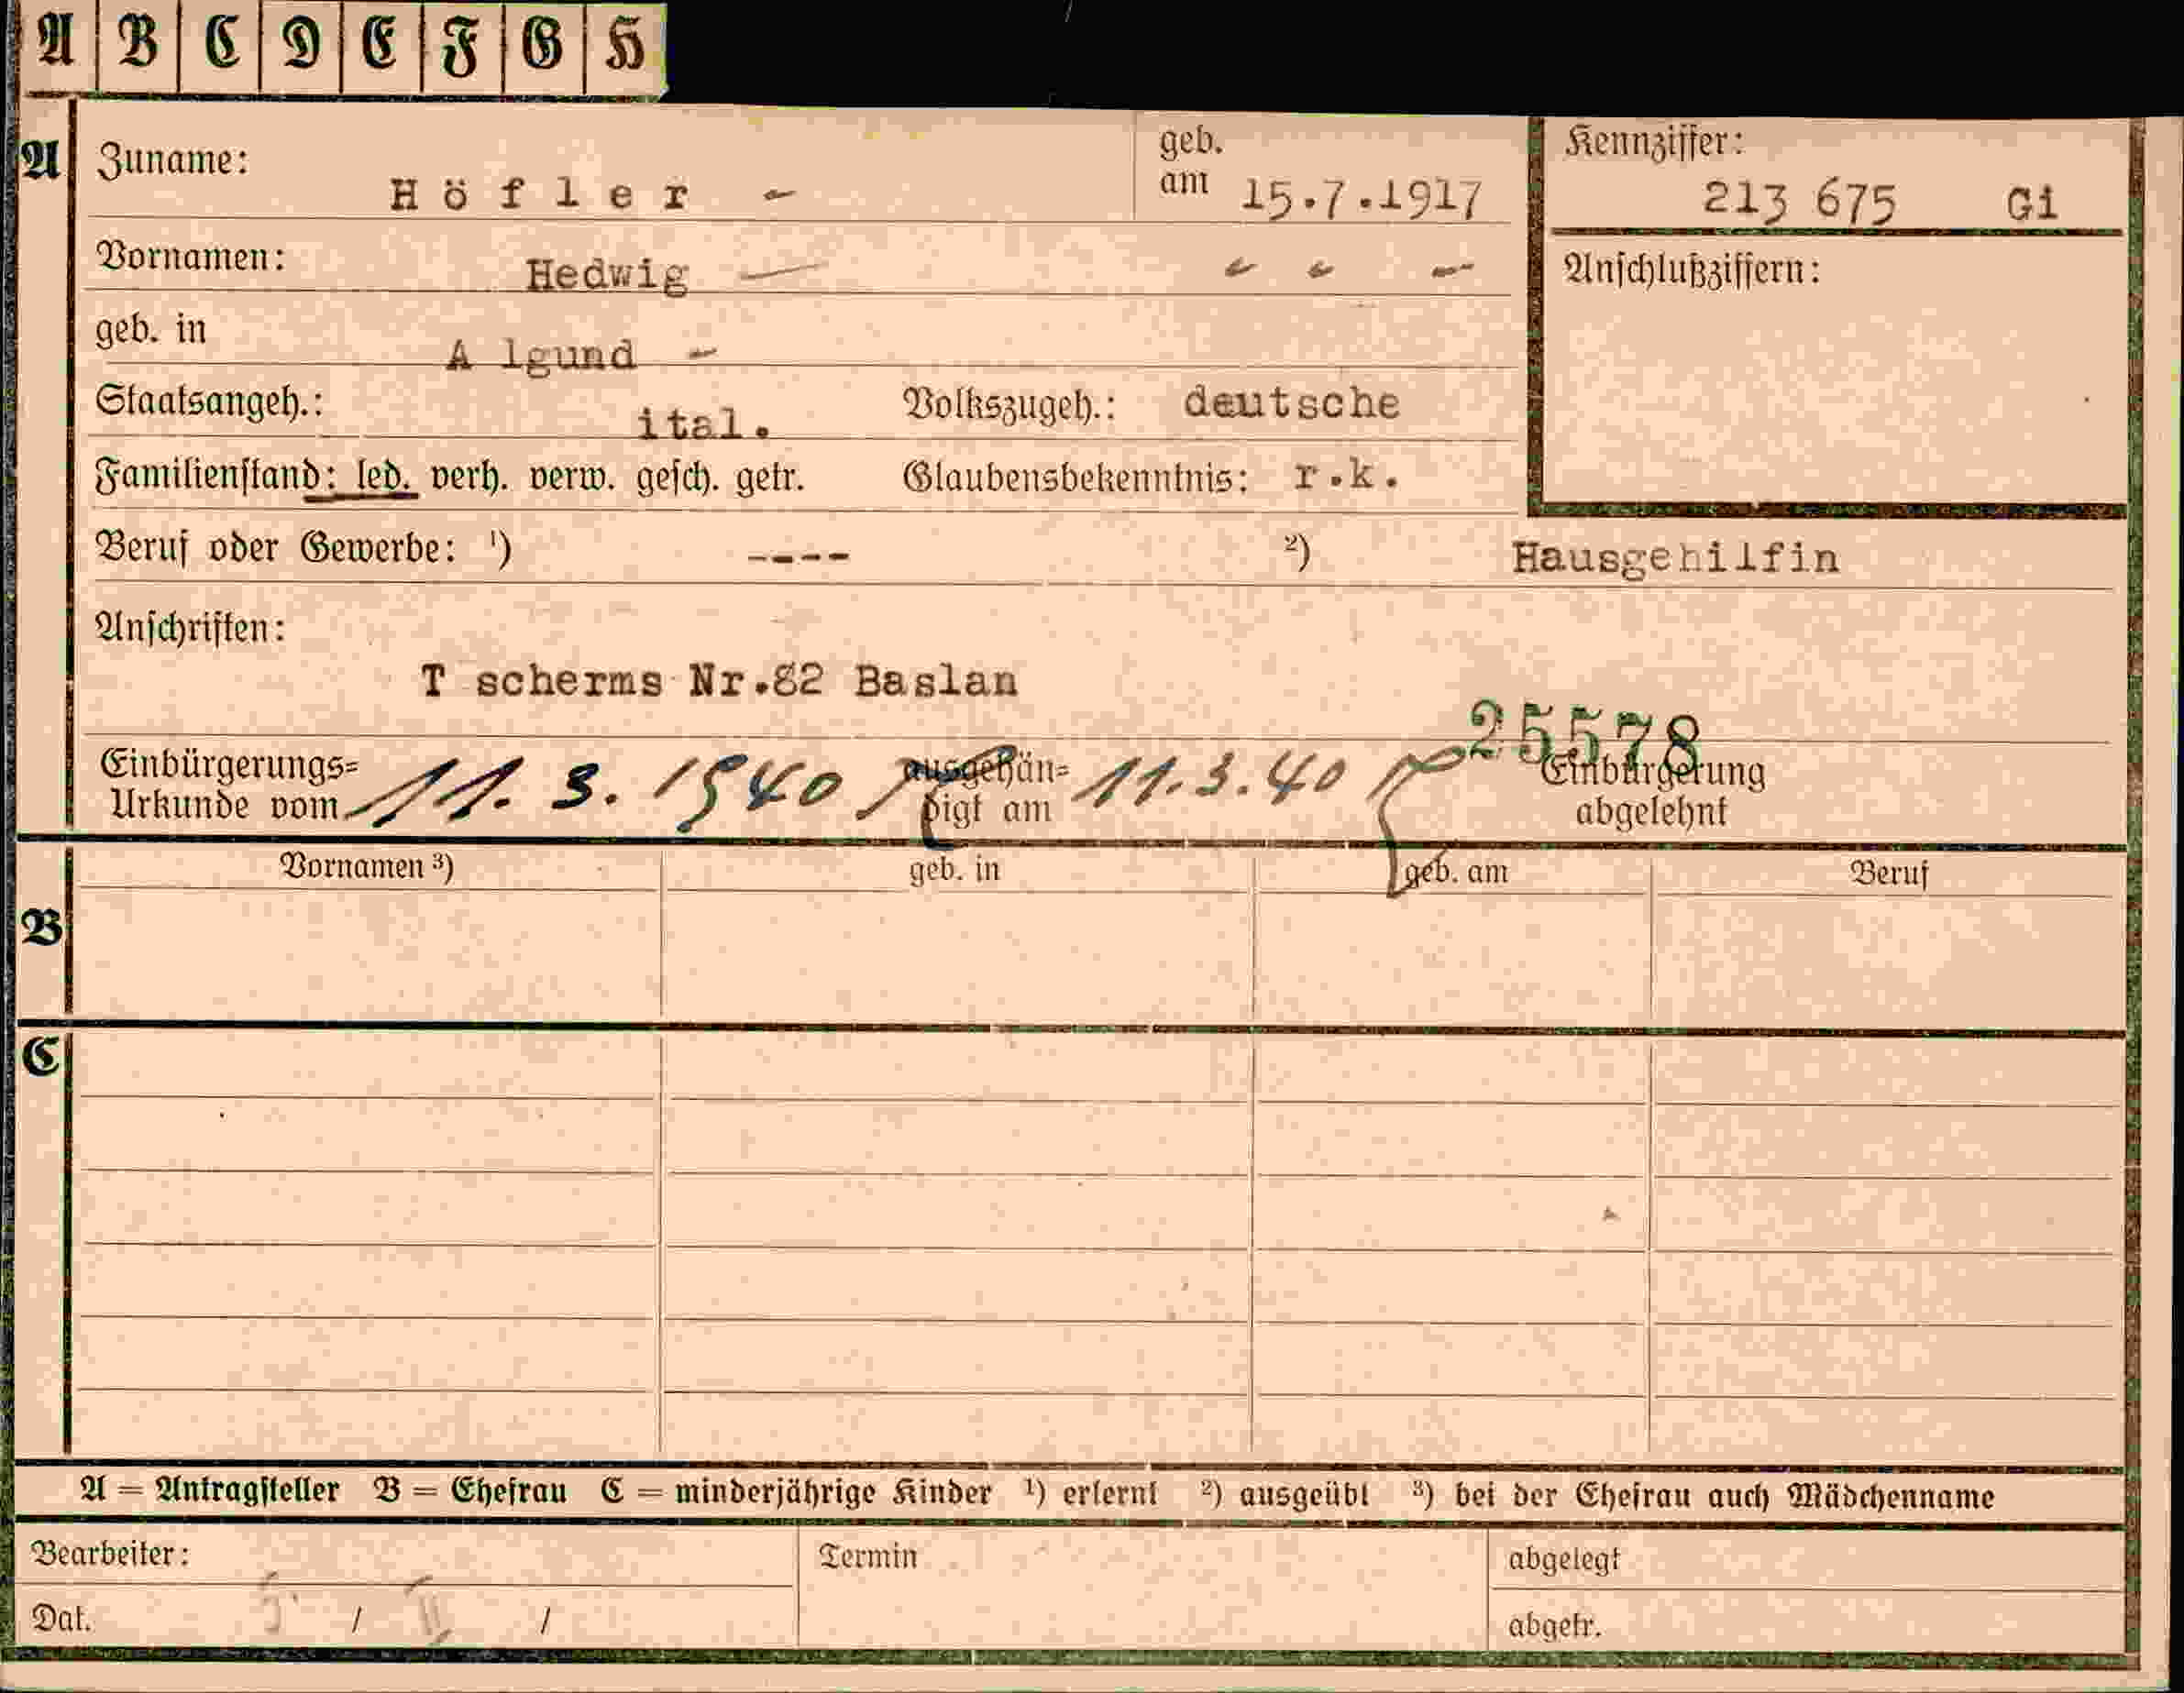 A B C D E F G H
A Zuname: Höfler - geb. am 15.7.1917 Kennziffer: 213 675 Gi
Vornamen: Hedwig Anschlußziffern:
geb. in A lgund -
Staatsangeh.: ital. Volkszugeh.: deutsche
Familienstand: led. verh. verw. gesch. getr. Glaubensbekenntnis: r.k.
Beruf oder Gewerbe: ¹) ---- ²) Hausgehilfin
Anschriften:
T scherms Nr.82 Baslan
25578
Einbürgerungs= ausgehän= Einbürgerung
Urkunde vom 11. 3. 1940 digt am 11.3.40 abgelehnt
Vornamen ³) geb. in geb. am Beruf
B
C
A = Antragsteller B = Ehefrau C = minderjährige Kinder ¹) erlernt ²) ausgeübt ³) bei der Ehefrau auch Mädchenname
Bearbeiter: Termin abgelegt
Dat. / / abgetr.